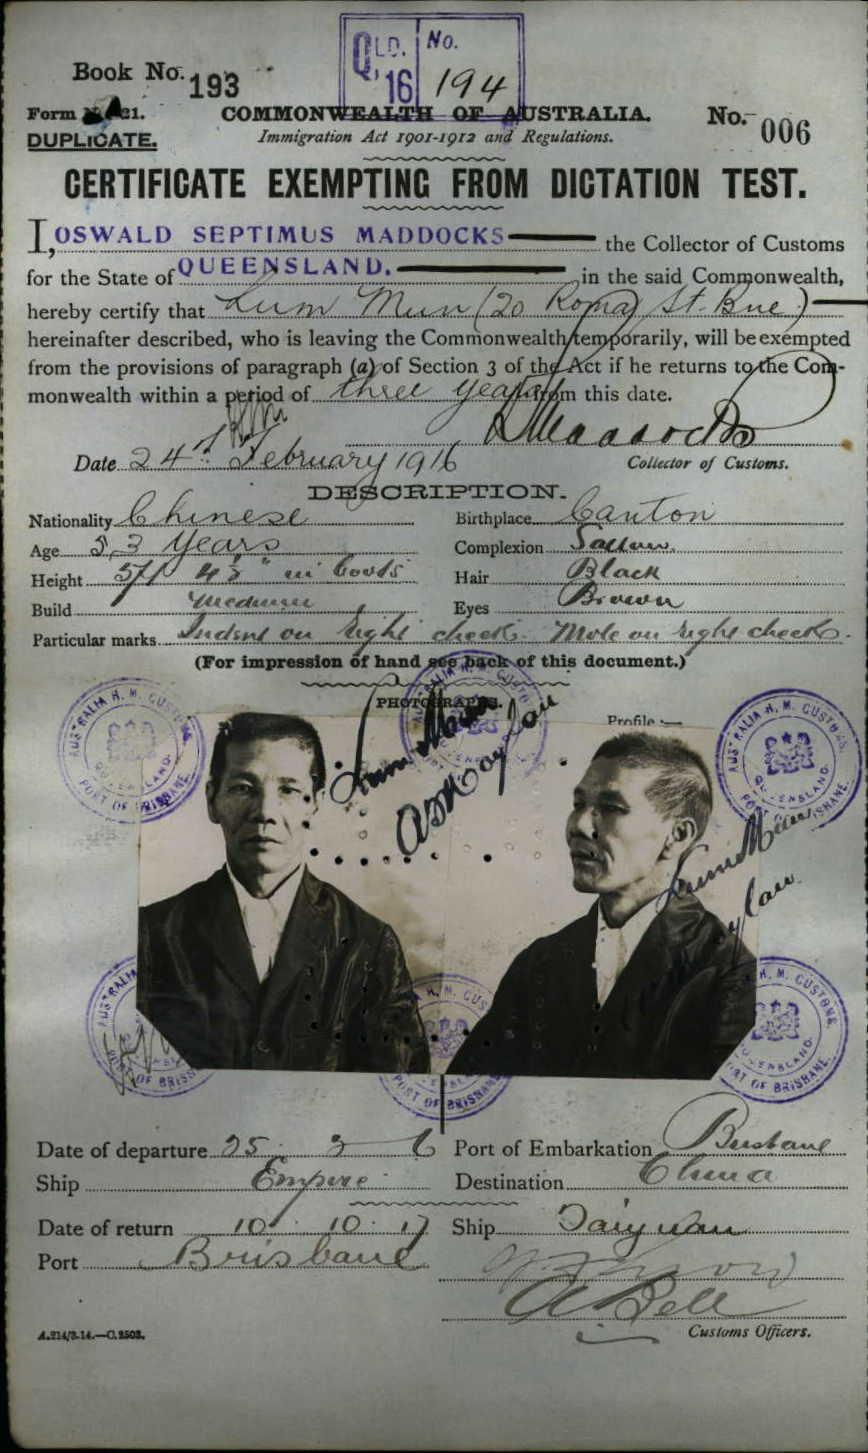 QLD. No.
'16 194
Book No. 193
Form 21.
COMMONWEALTH OF AUSTRALIA.
No. 006
DUPLICATE.
Immigration Act 1901-1912 and Regulations.
CERTIFICATE EXEMPTING FROM DICTATION TEST.
I, OSWALD SEPTIMUS MADDOCKS the Collector of Customs
for the State of QUEENSLAND. in the said Commonwealth,
hereby certify that Lum Mun (20 Roma St. Bne)
hereinafter described, who is leaving the Commonwealth temporarily, will be exempted
from the provisions of paragraph (a) of Section 3 of the Act if he returns to the Com-
monwealth within a period of three years from this date.
Date 24th February 1916
Collector of Customs.
DESCRIPTION.
Nationality Chinese Birthplace Canton
Age 53 years Complexion Sallow
Height 5ft 4½" in boots Hair Black
Build Medium Eyes Brown
Particular marks Indent on right cheek. Mole on right cheek.
(For impression of hand see back of this document.)
PHOTOGRAPHS.
Profile :—
AUSTRALIA H. M. CUSTOMS. QUEENSLAND. PORT OF BRISBANE.
Lum Mun
Lum Mun
AUSTRALIA H. M. CUSTOMS. QUEENSLAND. PORT OF BRISBANE.
Date of departure 25. 2 6 Port of Embarkation Brisbane
Ship Empire Destination China
Date of return 10. 10. 17 Ship Taiyuan
Port Brisbane
A Bell
A.214/3.14.—C.2503. Customs Officers.